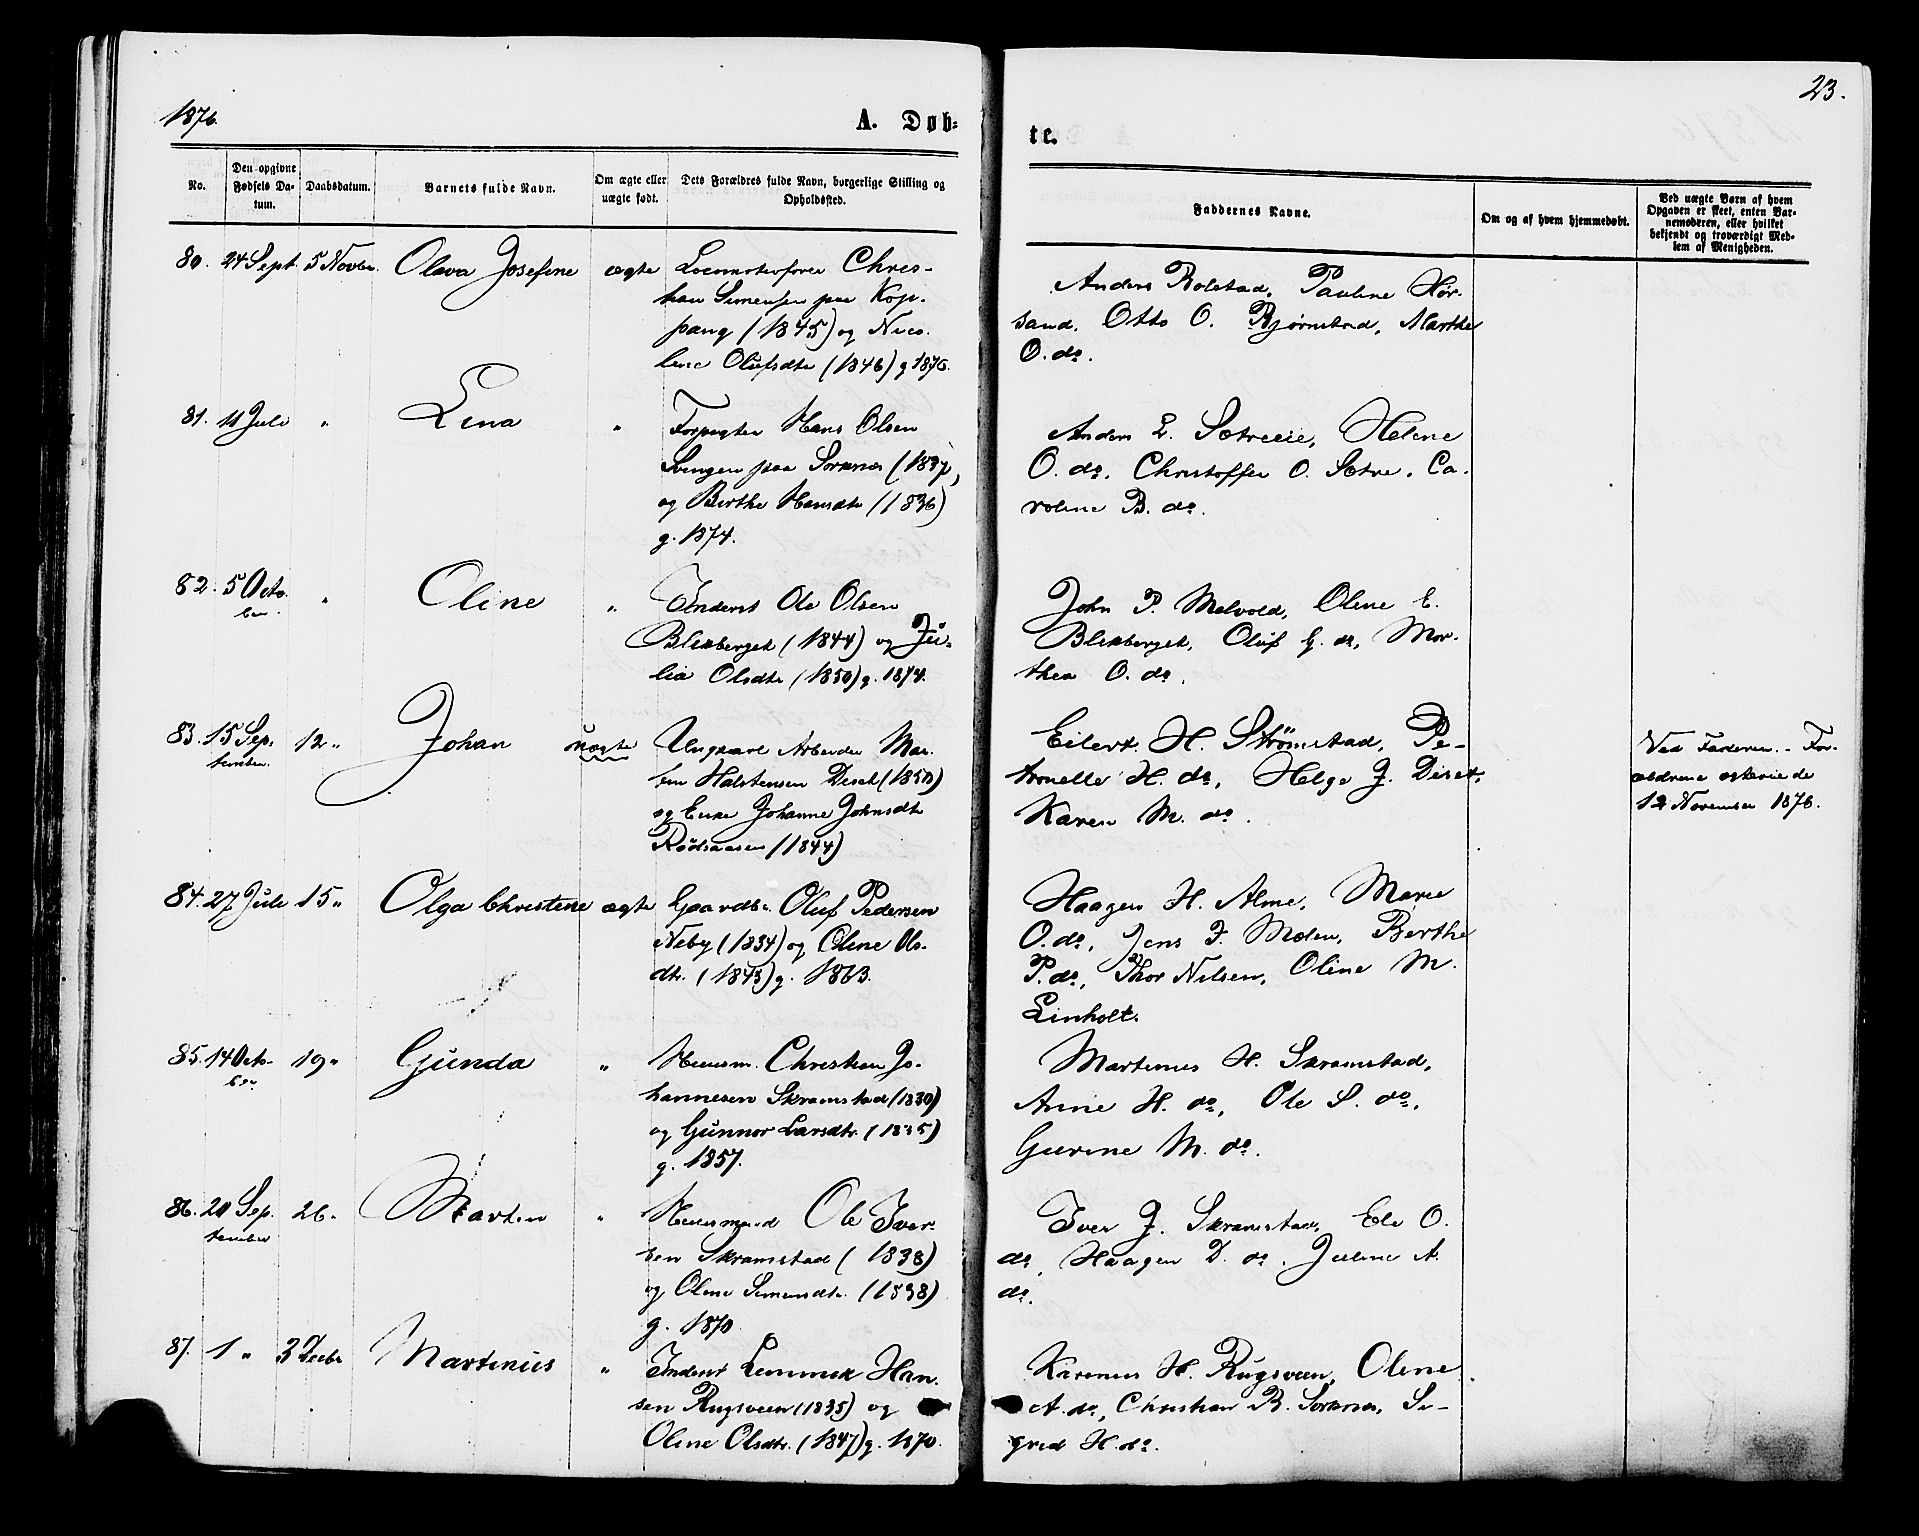 1876.
A. Døb-
te.
23.
No.
Den opgivne Fødsels Da-tum.
Daabsdatum.
Barnets fulde Navn.
Om ægte eller uægte født.
Dets Forældres fulde Navn, borgerlige Stilling og Opholdssted.
Faddernes Navne.
Om og af hvem hjemmedøbt.
Ved uægte Børn af hvem Opgaven er skeet, enten Bar-nemoderen, eller hvilket bekjendt og troværdigt Med-lem af Menigheden.
80. 24 Sept. 5 Novbr. Olava Josefine ægte Locomotivfører Chris-
tian Simensen paa Kop-
pang (1845) og Nico-
line Olufsdtr (1846) g 1876.
Anders Rolstad, Pauline Hør-
sand, Otto O. Bjørnstad, Marthe
O. do.
81. 11 Juli " Lina " Forpagter Hans Olsen
Svengen paa Sorknes (1837,
og Berthe Hansdtr (1836)
g. 1874.
Anders L. Sætreeie, Helene
O. do, Christoffer O. Sætre, Ca-
roline B. do.
82. 5 Octo-
ber. " Oline " Inderst Ole Olsen
Blekberget (1844) og Ju-
lia Olsdtr (1850) g. 1874.
John P. Melvold, Oline E.
Blekberget, Oluf G. do, Mar-
thea O. do.
83. 15 Sep-
tember. 12 " Johan uægte Ungkarl Arbeider Mar-
tin Halstensen Diset (1850)
og Enke Johanne Johnsdtr
Rødsaasen (1844)
Eilert H. Strømstad, Pe-
tronelle H. do, Helge J. Diset,
Karen M. do.
Ved Faderen. - For-
ældrene ægteviede
12 November 1876.
84. 27 Juli 15 " Olga Christine ægte Gaardbr. Oluf Pedersen
Neby (1834) og Oline Ols-
dtr. (1843) g. 1863.
Haagen H. Alme, Marie
O. do, Jens F. Moten, Berthe
P. do, Thor Nilsen, Oline M.
Linholt.
85. 14 Octo-
ber 19 " Gunda " Huusm. Christian Jo-
hannesen Skramstad (1830)
og Gunnor Larsdtr. (1835)
g. 1857.
Martinus H. Skramstad,
Anne H. do, Ole S. do,
Gurine M. do.
86. 20 Sep-
tember 26 " Martin " Huusmand Ole Iver-
sen Skramstad (1838)
og Oline Simensdtr. (1838)
g. 1870.
Iver J. Skramstad, Eli O.
do, Haagen D. do, Juline A.
do.
87. 1 " 3 Decbr Martinus " Inderst Lemmik Han-
sen Rugsveen (1835) og
Oline Olsdtr. (1847) g. 1870.
Karinus H. Rugsveen, Oline
A. do, Christian B. Sorknes, Si-
grid H. do.